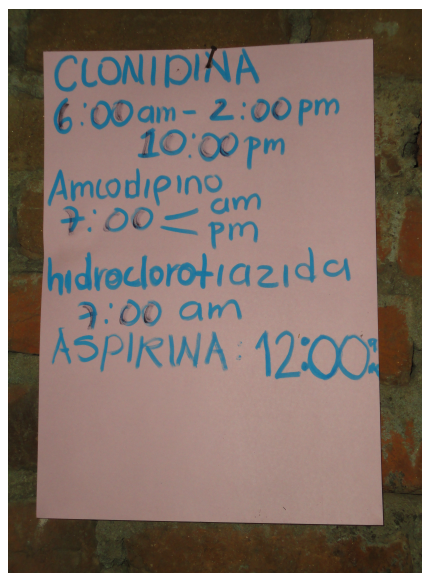 CLONIDINA
6:00 am - 2:00 pm
10:00 pm
Amlodipino
7:00 < am
pm
hidroclorotiazida
7:00 am
ASPIRINA: 12:00